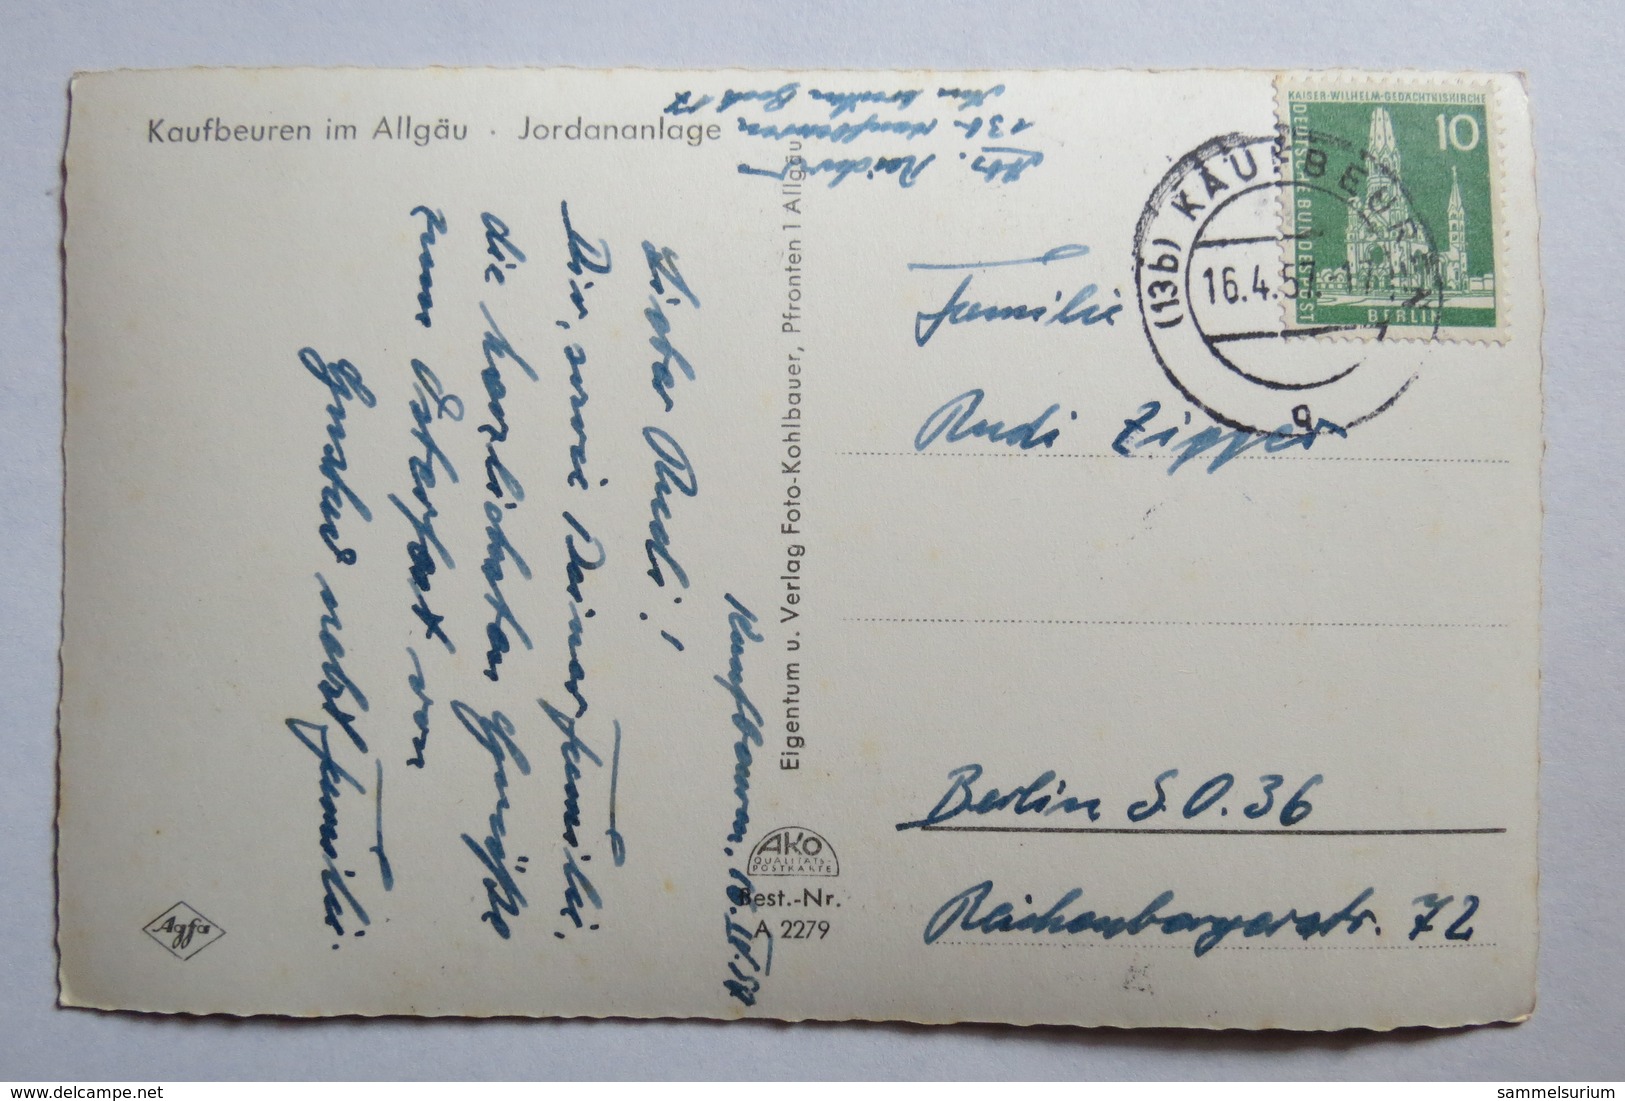 Kaufbeuren im Allgäu · Jordananlage
Kaufbeuren, 16.IV.57
Lieber Rudi!
Dir, sowie Deiner Familie
die herzlichsten Grüße
zum Osterfest von
Gustav nebst Familie.
Abs.
13b Kaufbeuren
17
Eigentum u. Verlag Foto-Kohlbauer, Pfronten 1 Allgäu
AKO
QUALITÄTS-
POSTKARTE
Best.-Nr.
A 2279
Agfa
KAISER-WILHELM-GEDÄCHTNISKIRCHE
10
DEUTSCHE BUNDESPOST
BERLIN
(13b) KAUFBEUREN 1
16.4.57.-17
g
Familie
Rudi Zipper
Berlin S.O.36
Reichenbergerstr. 72
sammelsurium
delcampe.net